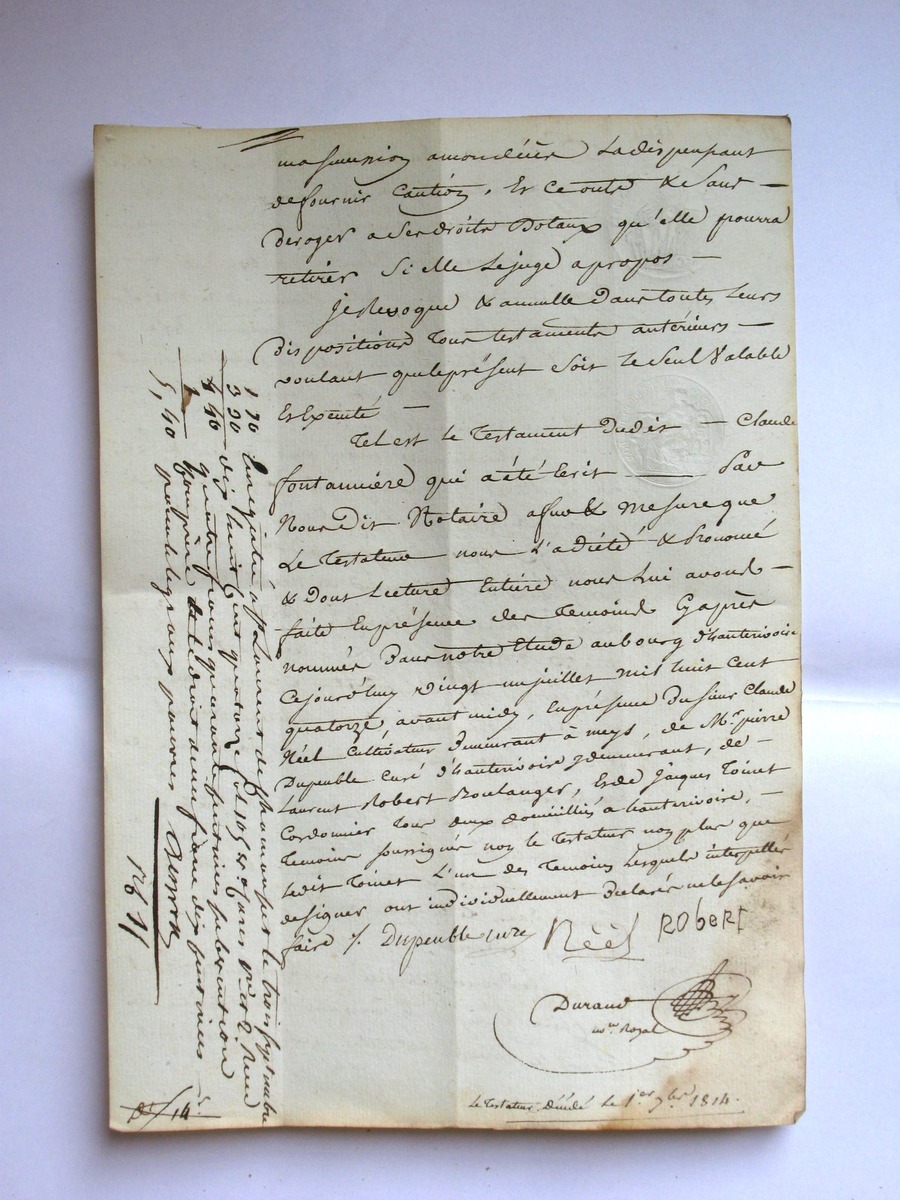 ma succession a mon décès La dispensant
de fournir Caution, Et ce outre & Sans —
deroger a Ses droits Dotaux qu'elle pourra
retirer Si elle Le juge a propos —
Je Revoque & annulle Dans toutes Leurs
Dispositions Tous testaments antérieurs —
voulant que le présent Soit le Seul Valable
Et Exécuté —
Tel est le Testament Dudit — Claude
fontannière qui a été Ecrit — Par
Nous Dit Notaire a fur & mesure que
Le Testateur nous L'a dicté & Prononcé
& Dont Lecture Entière nous Lui avons —
faite En présence des Temoins Cy après
nommés Dans notre Etude au bourg d'hauterivoire
Ce jourd'huy Vingt un juillet mil huit cent
quatorze, avant midy, En présence Du Sieur Claude
Néel Cultivateur Demeurant à meys, de Mr. pierre
Dupeuble Curé d'hauterivoire y demeurant, de —
Laurent Robert Boulanger, Et de Jacques Toinet
Cordonnier Tous deux domiciliés a hauterivoire, —
Temoins soussignés non le Testateur non plus que
Ledit Toinet L'un des Temoins Lesquels interpellés
de signer ont individuellement Déclarés ne le Savoir
faire /. Dupeuble curé Néel Robert
Durand
nre Royal
Le Testateur décédé Le 1er 7bre 1814.
1 10 Enregistré à St Laurent de Chamousset le trois septembre
3 30 dix huit cent quatorze
4 40 quatre francs quarante centimes subvention
1 comprise
5, 40 pour legs aux pauvres